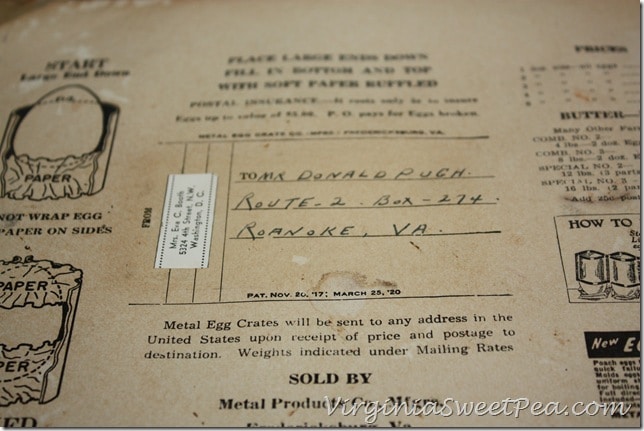 START
Large End Down
PAPER
NOT WRAP EGG
PAPER ON SIDES
PAPER
PLACE LARGE ENDS DOWN
FILL IN BOTTOM AND TOP
WITH SOFT PAPER RUFFLED
POSTAL INSURANCE—It costs only 5c to insure
Eggs up to value of P. O. pays for Eggs broken.
METAL EGG CRATE CO. MFRS. FREDERICKSBURG, VA.
FROM
Mrs. Eva C. Booth
5324 4th Street, N.W.
Washington, D. C.
TO MR DONALD PUGH.
ROUTE-2. BOX-274.
ROANOKE, VA.
PAT. NOV. 20, '17; MARCH 25, '20
Metal Egg Crates will be sent to any address in the
United States upon receipt of price and postage to
destination. Weights indicated under Mailing Rates
SOLD BY
Metal Products Co., Mfgrs.
Fredericksburg, Va.
PRICES
BUTTER—
Many Other
COMB. NO. 2—
4 lbs.—2 doz.
COMB. NO. 3—
8 lbs.—2 doz.
SPECIAL NO. 2—
12 lbs. (3
SPECIAL NO. 3—
16 lbs. (2
Add 25c
HOW TO
New
Poach eggs
quick
Molds eggs
uniform
for
boiling
Full
included
VirginiaSweetPea.com